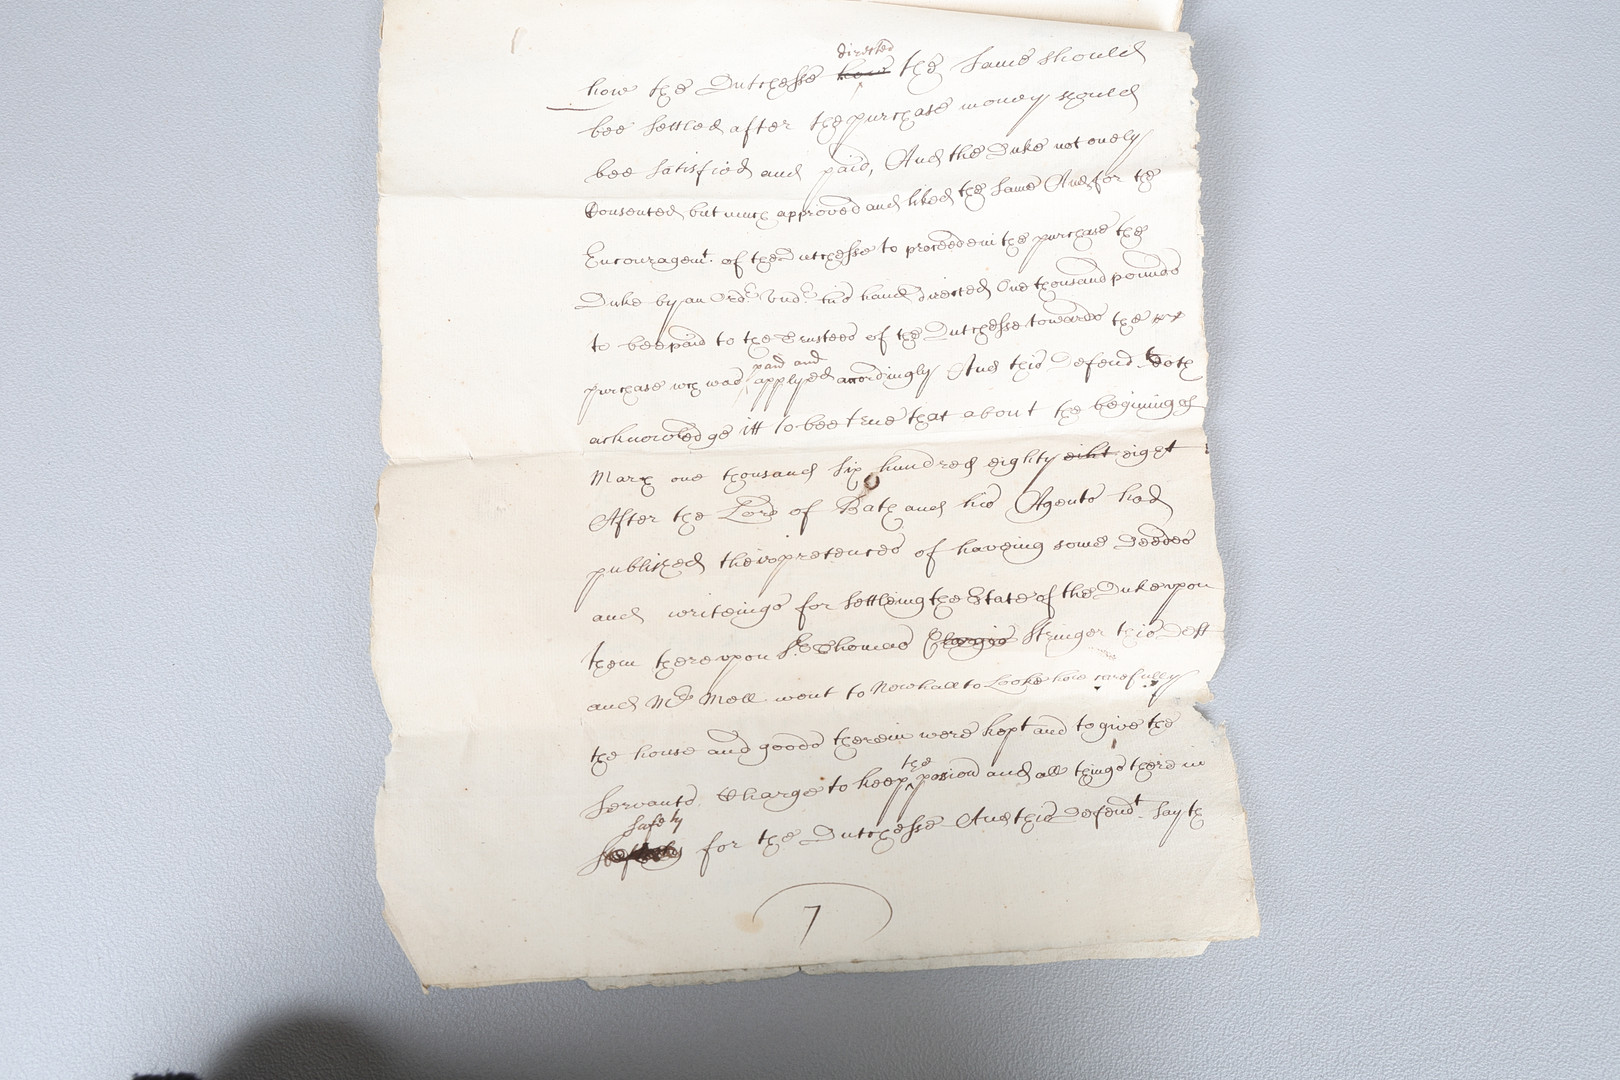 directed
how the Dutchesse how the same should
bee settled after the purchase money should
bee satisfied and paid, And the Duke not onely
Consented but much approved and liked the same And for the
Encouragemt. of the Dutchesse to proceede in the purchase the
Duke by an Ordr. Undr. his hand directed One thousand pounds
to bee paid to the Trustees of the Dutchesse towards the
paid and
purchase wch was applyed accordingly And this Defend. doth
acknowledge itt to bee true that about the begining of
March one thousand six hundred eighty eiht eight
After the Lord of Bath and his Agents had
published their pretences of haveing some Deedes
and writeings for settleing the Estate of the Duke upon
them thereupon Sr. Thomas Clargis Stringer this Deft
and Mr. Moll went to Newhall to Looke how carefully
the house and goods therein were kept and to give the
the
Servants Charge to keep posion and all things there in
safely
for the Dutchesse And this Defendt. sayth
7